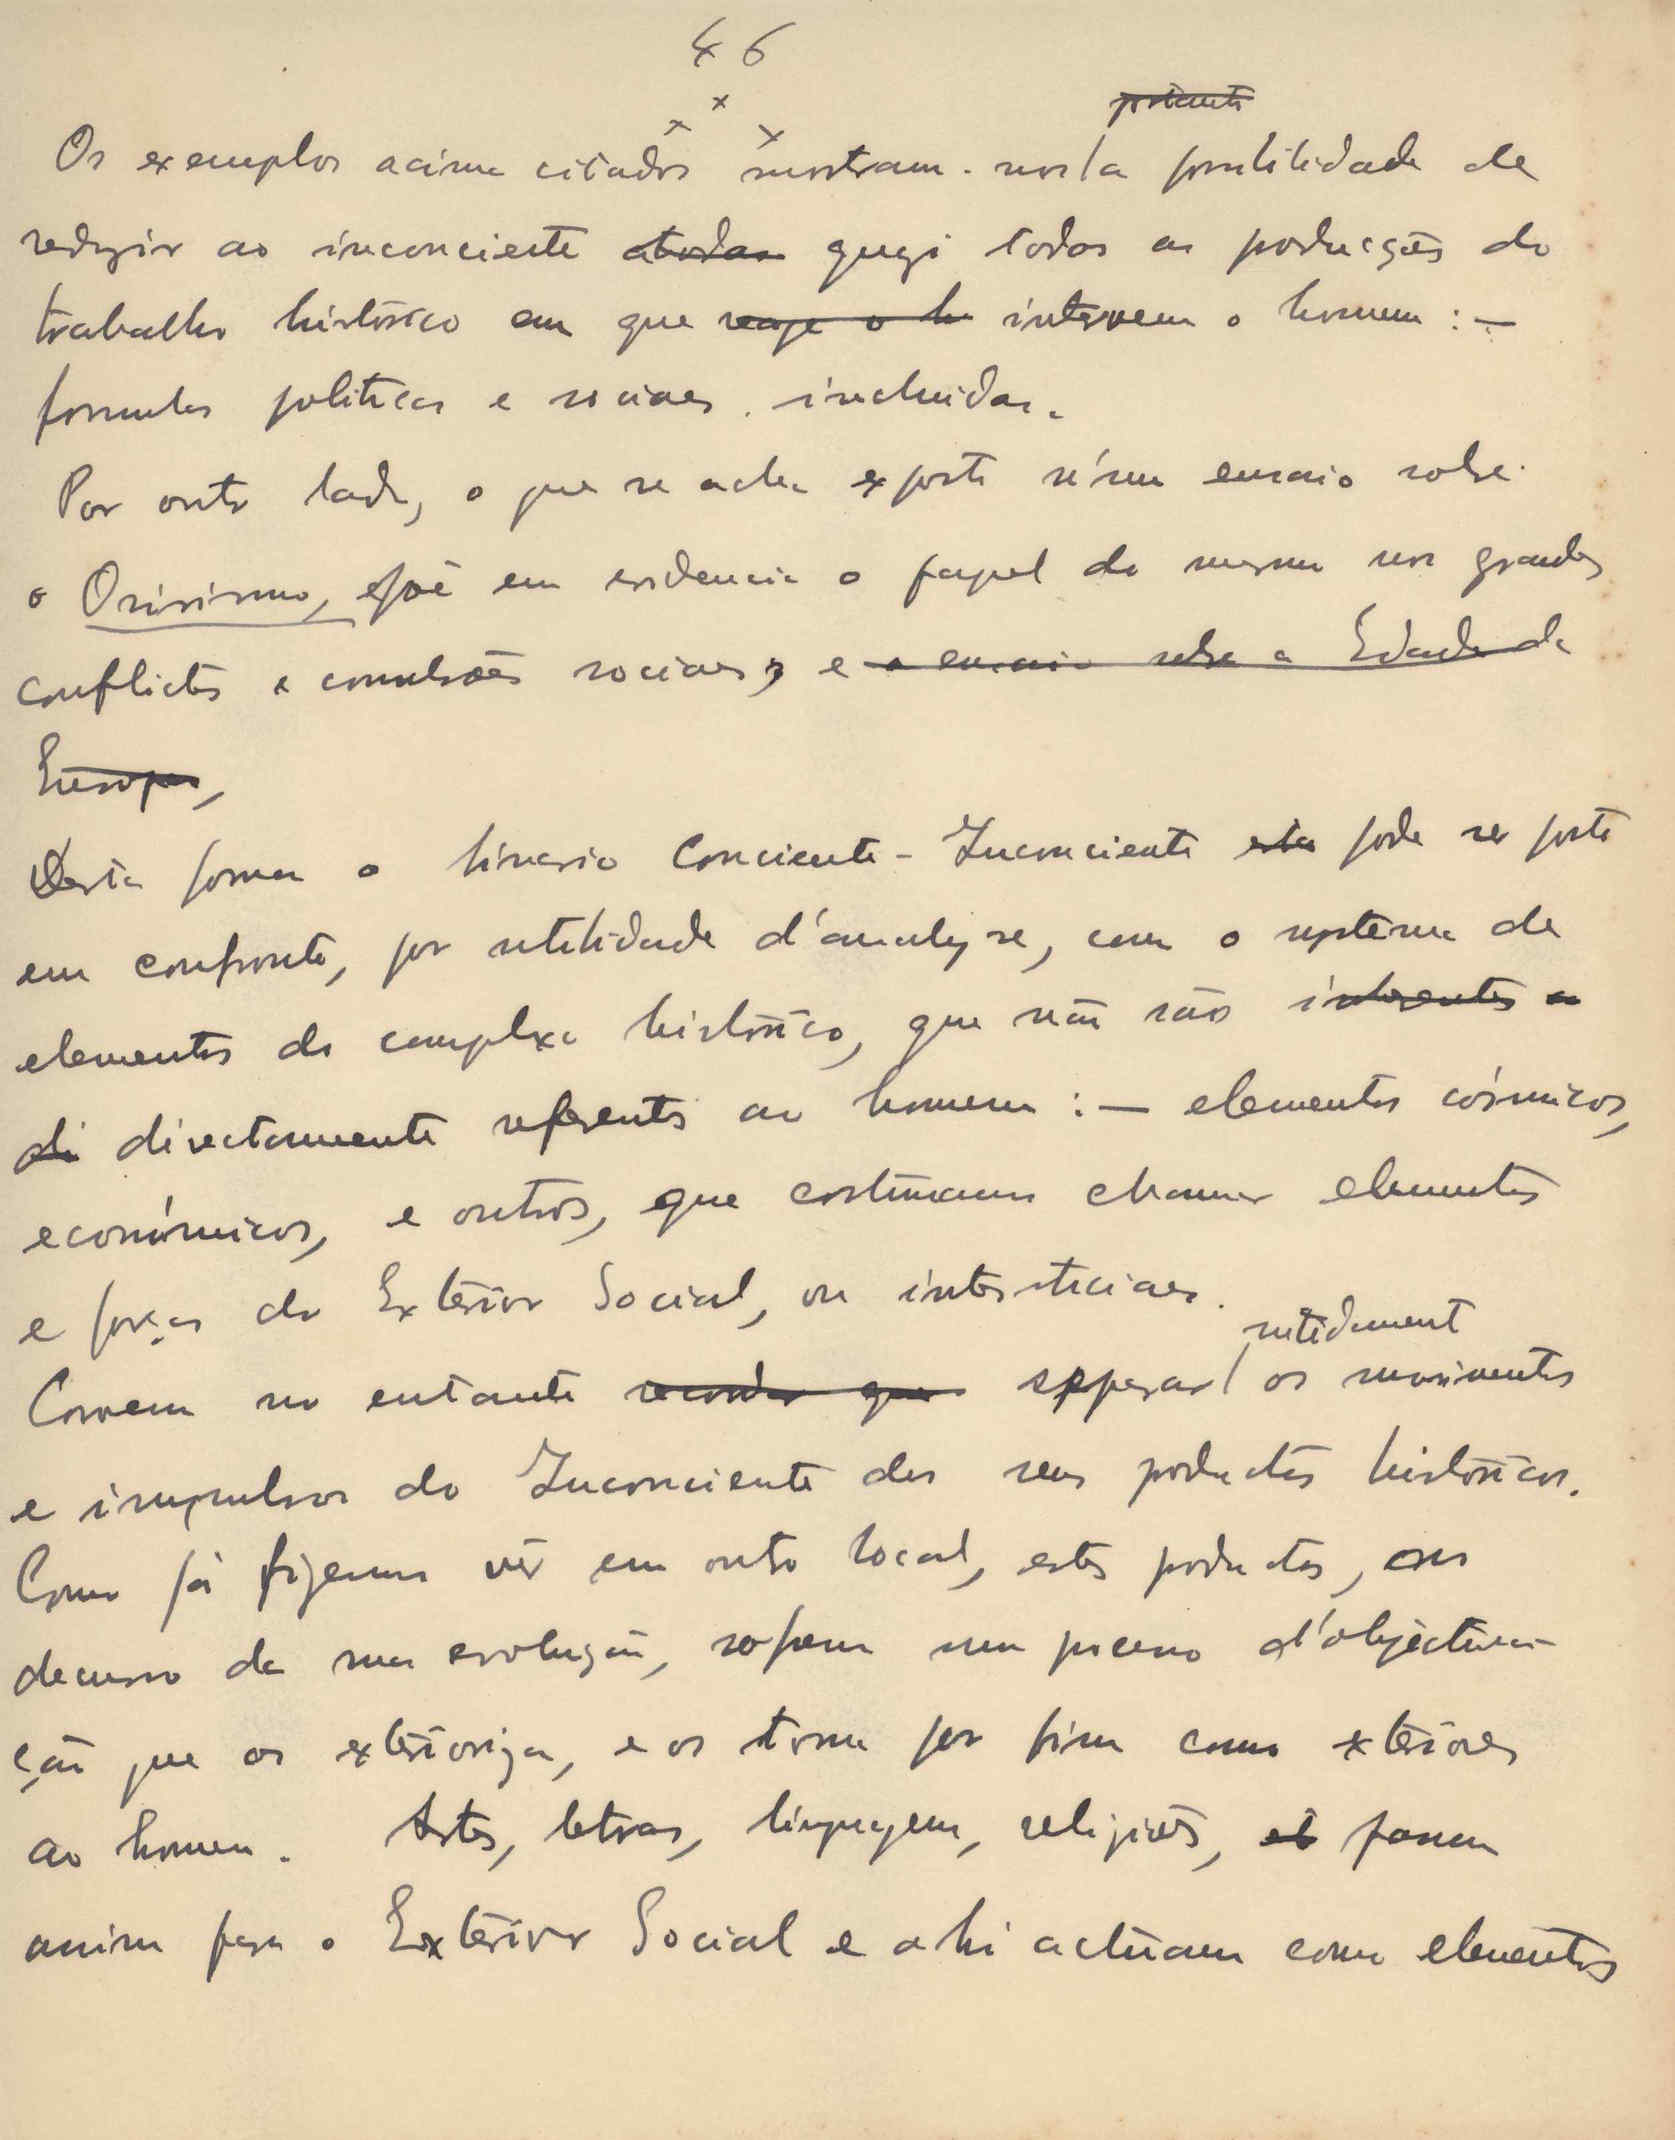 46
x
x x
portanto
Os exemplos acima citados mostram-nos a possibilidade de
reduzir ao inconciente a todas quasi todas as producções do
trabalho histórico em que reage o h intervem o homem : —
formulas politicas e sociaes incluidas.
Por outro lado, o que se acha exposto n'um ensaio sobre
o Onirismo, põe em evidencia o papel do mesmo nos grandes
conflictos e convulsões sociaes, e o ensaio sobre a Edade da
Europa,
Desta forma o binario Conciente - Inconciente esta pode ser posto
em confronto, por utilidade d'analyse, com o systema de
elementos do complexo histórico, que não são inherentes a
di directamente referentes ao homem : — elementos cósmicos,
económicos, e outros, que costumamos chamar elementos
e forças do Exterior Social, ou intersticiaes.
nitidament
Convem no entanto recordar que separar os movimentos
e impulsos do Inconciente dos seus productos históricos.
Como já fizemos vêr em outro local, estes productos, no
decurso da sua evolução, sofrem um processo d'objectiva-
ção que os exterioriza, e os torna por fim como exteriores
ao homem. Artes, letras, linguagem, religiões, et passam
assim para o Exterior Social e ahi actúam como elementos